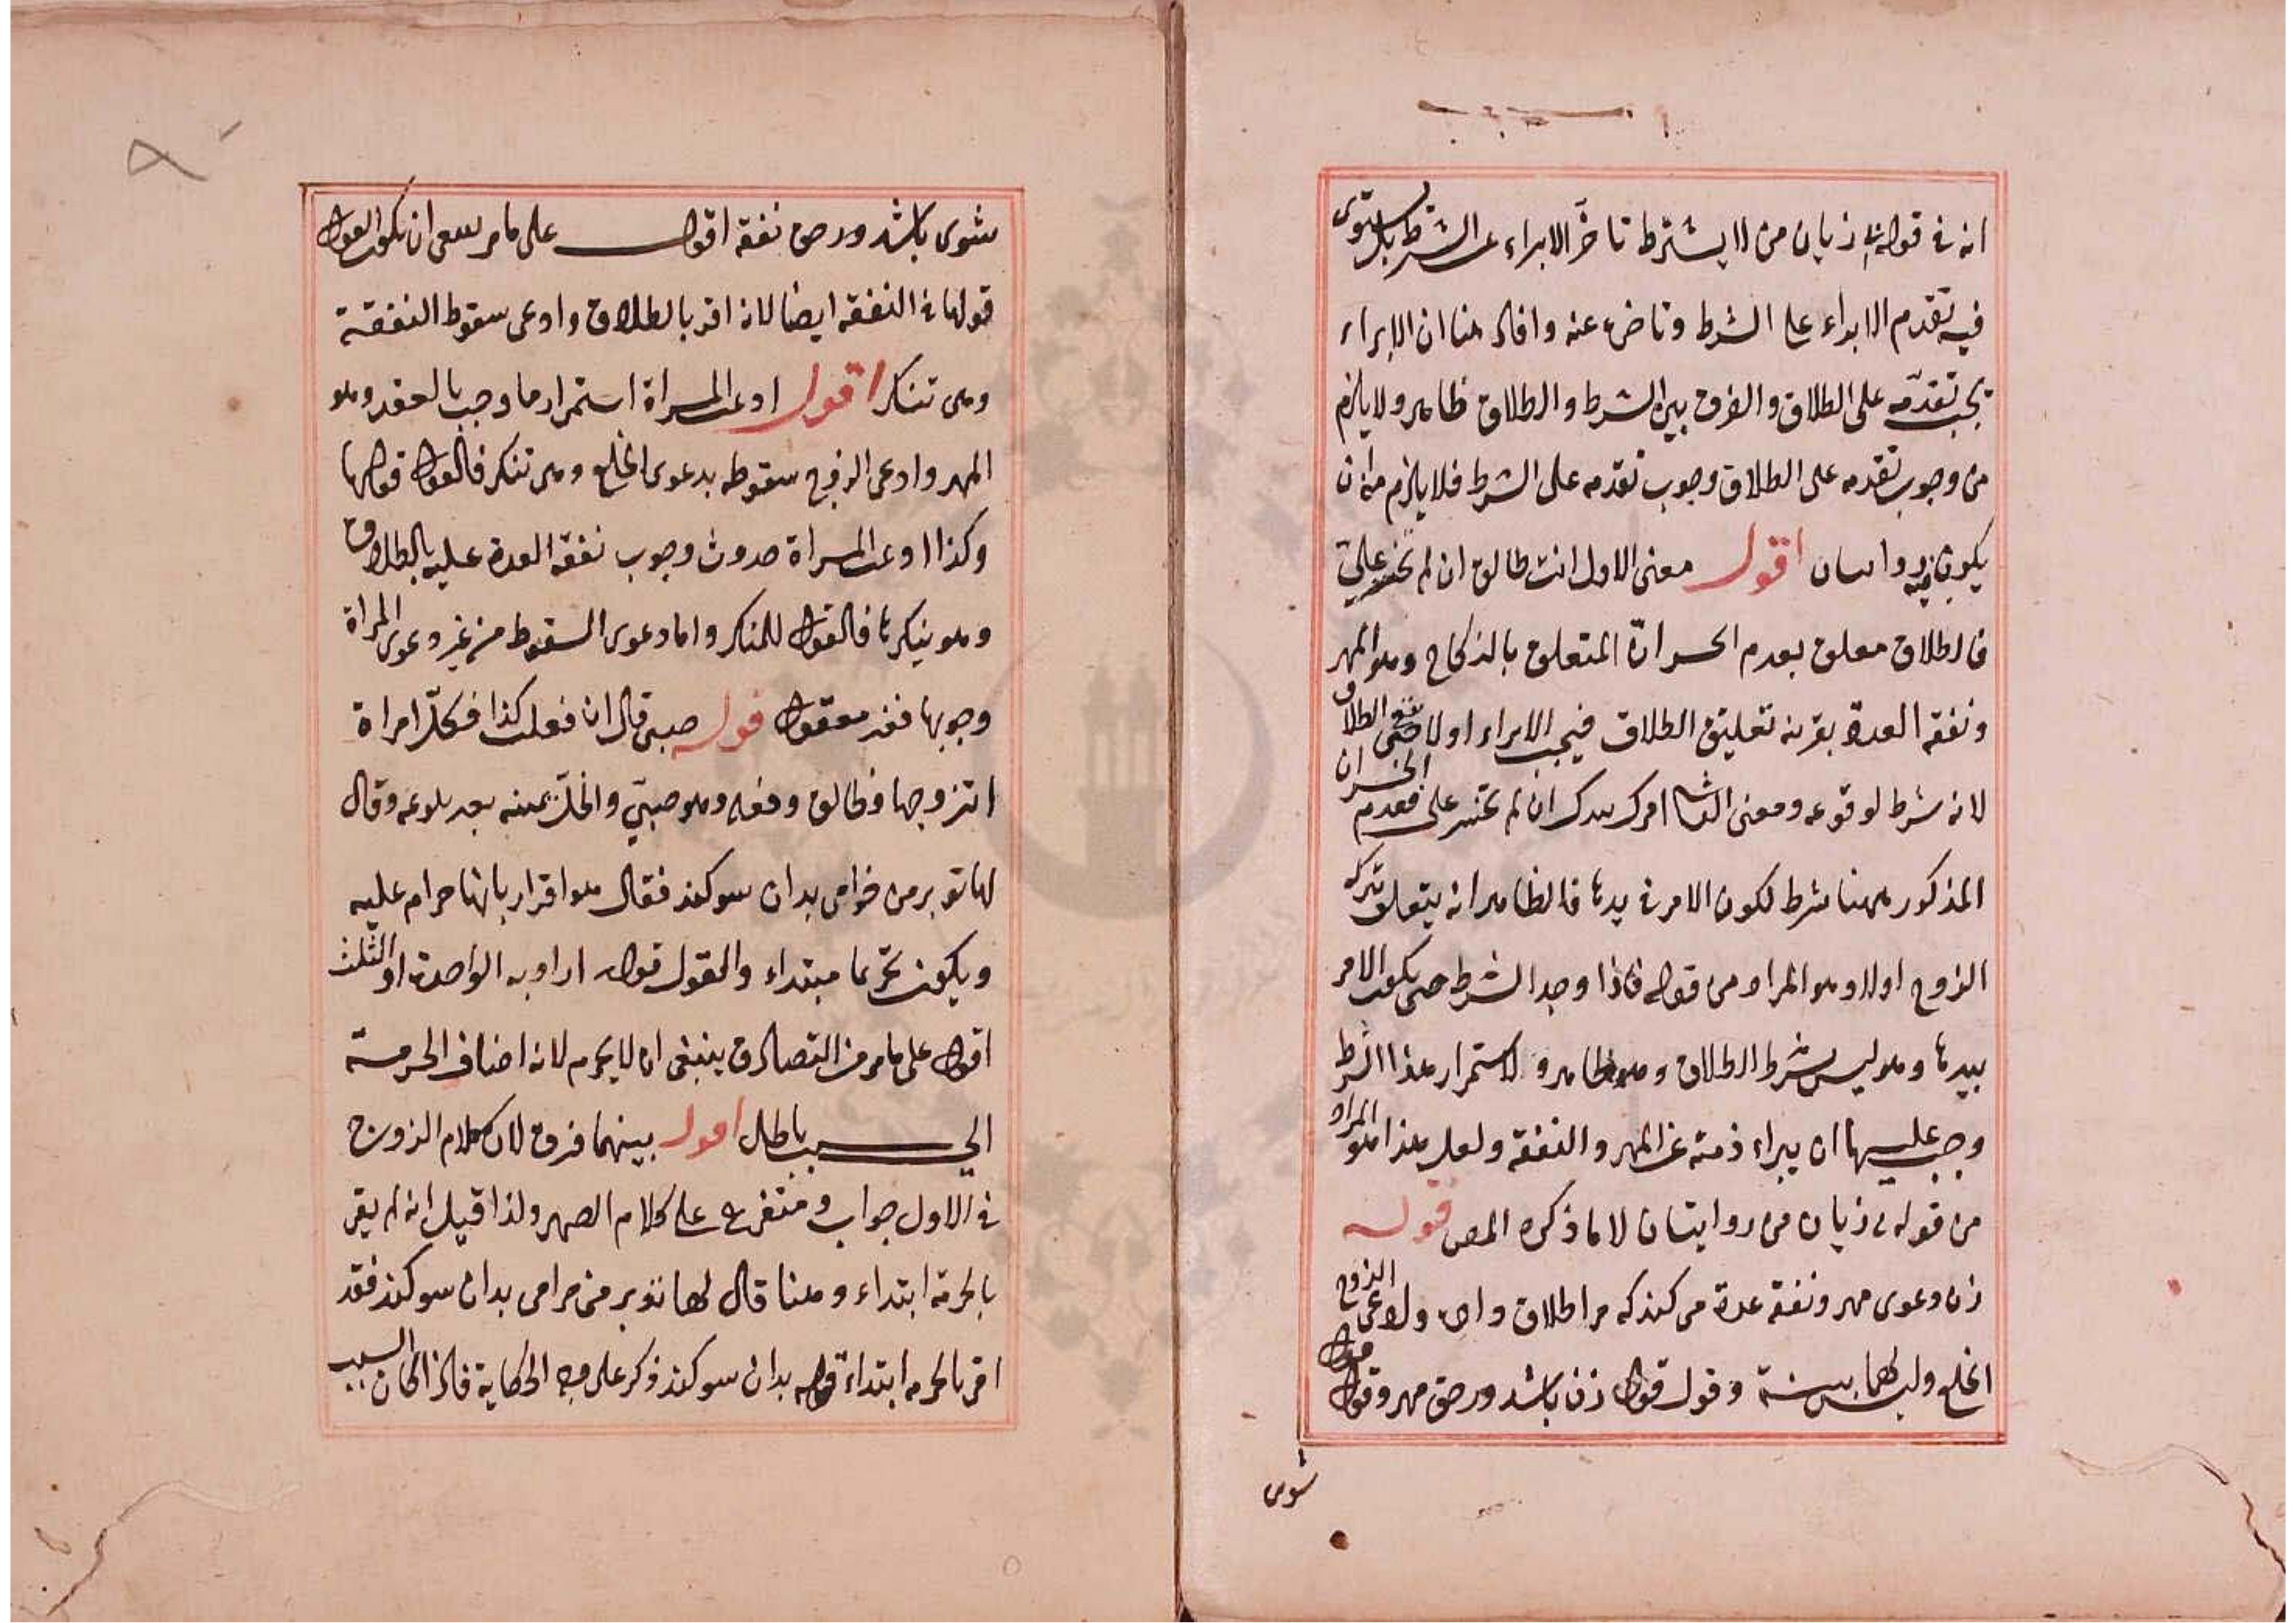 انه في قوله بى زيان من لا يشترط تاخر الابراء عن الشرط بل يستوى
فيه تقدم الابراء على الشرط وتاخره عنه وافاد هنا ان الابراء
يجب تقدمه على الطلاق والفرق بين الشرط والطلاق ظاهر ولا يلزم
من وجوب تقدمه على الطلاق وجوب تقدمه على الشرط فلا يلزم منه ان
يكون فيه روايتان اقول معنى الاول انت طالق ان لم تخسر على
فالطلاق معلق بعدم الخسران المتعلق بالنكاح وهو المهر
ونفقة العدة بقرينة تعليق الطلاق فيجب الابراء اولا حتى يقع الطلاق
لانه شرط لوقوعه ومعنى الثانى امرك بيدك ان لم تخسر على فعدم الخسران
المذكور ههنا شرط لكون الامر في يدها فالظاهر انه يتعلق بتركه
الزوج اولا وهو المراد من قوله فاذا وجد الشرط حتى يكون الامر
بيدها وهو ليس بشرط الطلاق وهو ظاهر ولاستمرار هذا الشرط
وجب عليها ان يبراء ذمته عن المهر والنفقة ولعل هذا هو المراد
من قوله بى زيان من روايتان لا ما ذكره المص قوله
زن دعوى مهر ونفقه عدة مى كند كه مرا طلاق داد وادعى الزوج
الخلع وليس لهما بينة وقول قول زن باشد در حق مهر وقول قول
شوى
شوى باشد در حق نفقه اقول على ما مر ينبغى ان يكون القول
قولها في النفقة ايضا لانه اقر بالطلاق وادعى سقوط النفقة
وهى تنكر اقول ادعت المراة استمرار ما وجب بالعقد وهو
المهر وادعى الزوج سقوطه بدعوى الخلع وهى تنكر فالقول قولها
وكذا ادعت المراة حدوث وجوب نفقة العدة عليه بالطلاق
وهو ينكرها فالقول للمنكر واما دعوى السقوط من غير دعوى المراة
وجوبها فغير معقول قوله صبى قال ان فعلت كذا فكل امراة
اتزوجها فطالق وفعله وهو صبى وانحل يمينه بعد بلوغه وقال
لها تو برمن حرامى بدان سوكند فقال هو اقرار بانها حرام عليه
ويكون تحريما مبتداء والقول قوله اراد به الواحدة او الثلث
اقول على ما مر من التصادق ينبغى ان لا يحرم لانه اضاف الحرمة
الى سبب باطل اقول بينهما فرق لان كلام الزوج
في الاول جواب ومتفرع على كلام الصهر ولذا قيل انه لم يقر
بالحرمة ابتداء وهنا قال لها تو برمن حرامى بدان سوكند فقد
اقر بالحرمة ابتداء قوله بدان سوكند ذكر على وجه الحكاية فاذا كان السبب